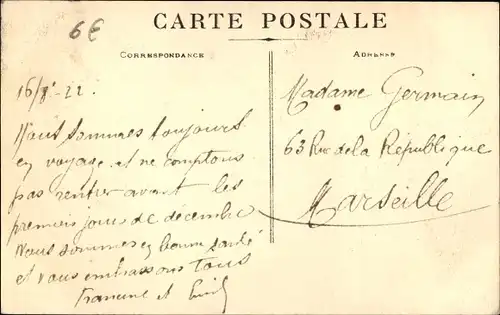 6€
CARTE POSTALE
CORRESPONDANCE
ADRESSE
16/8-22.
Nous sommes toujours
en voyage et ne comptons
pas rentrer avant les
premiers jours de décembre
Nous sommes en bonne santé
et vous embrassons tous
Francine et
Madame Germain
63 Rue de la République
Marseille